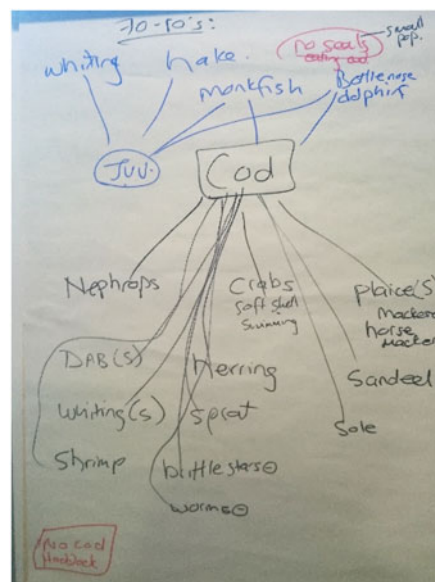 70-90's:
small pop.
no seals
eating cod
whiting
hake.
monkfish
Bottlenose dolphins
Juv.
Cod
Nephrops
Crabs
soft shell
swimming
plaice(s)
macker
horse
macker
DAB(s)
herring
sandeel
whiting(s)
sprat
sole
shrimp
brittle stars
worms
No cod
Haddock